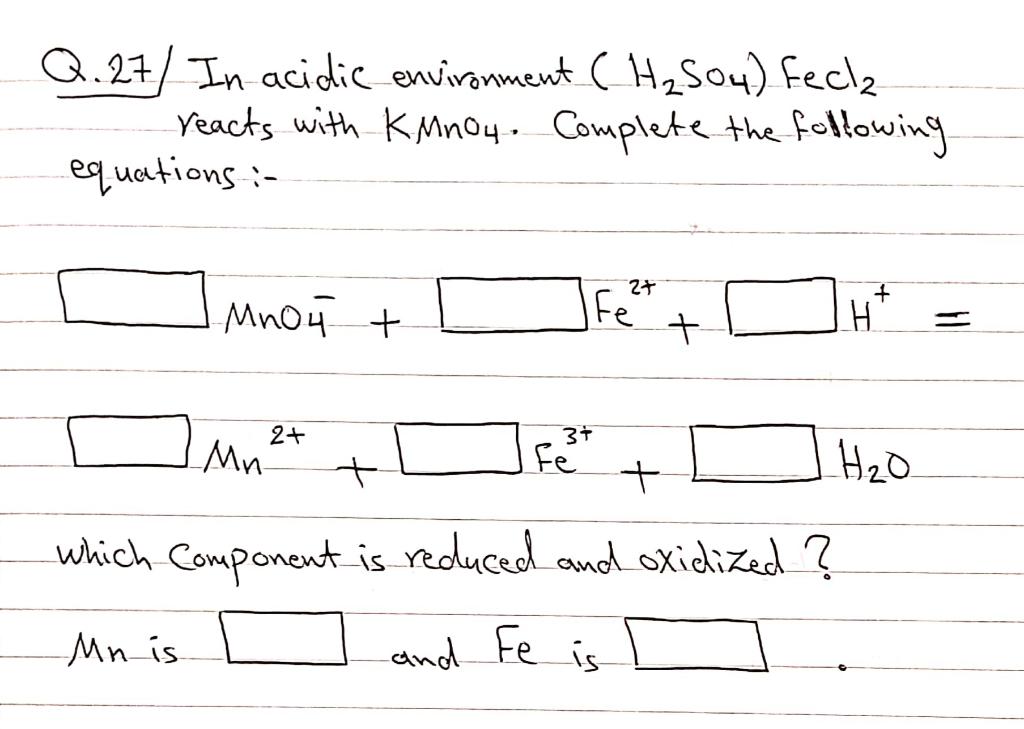 Q.27/ In acidic environment (H₂SO₄) FeCl₂
reacts with KMnO₄. Complete the following
equations :-
MnO₄⁻ + Fe²⁺ + H⁺ =
Mn²⁺ + Fe³⁺ + H₂O
which Component is reduced and oxidized ?
Mn is and Fe is .